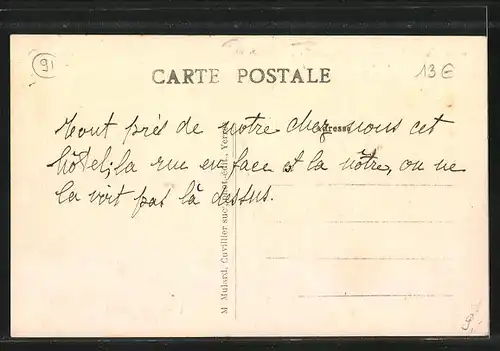 91
13€
CARTE POSTALE
Adresse
Tout prés de notre chez nous cet
hôtel; la rue en face est la nôtre, on ne
la voit pas là dessus.
M Mulard, Cuvillier suc édit., Yerres